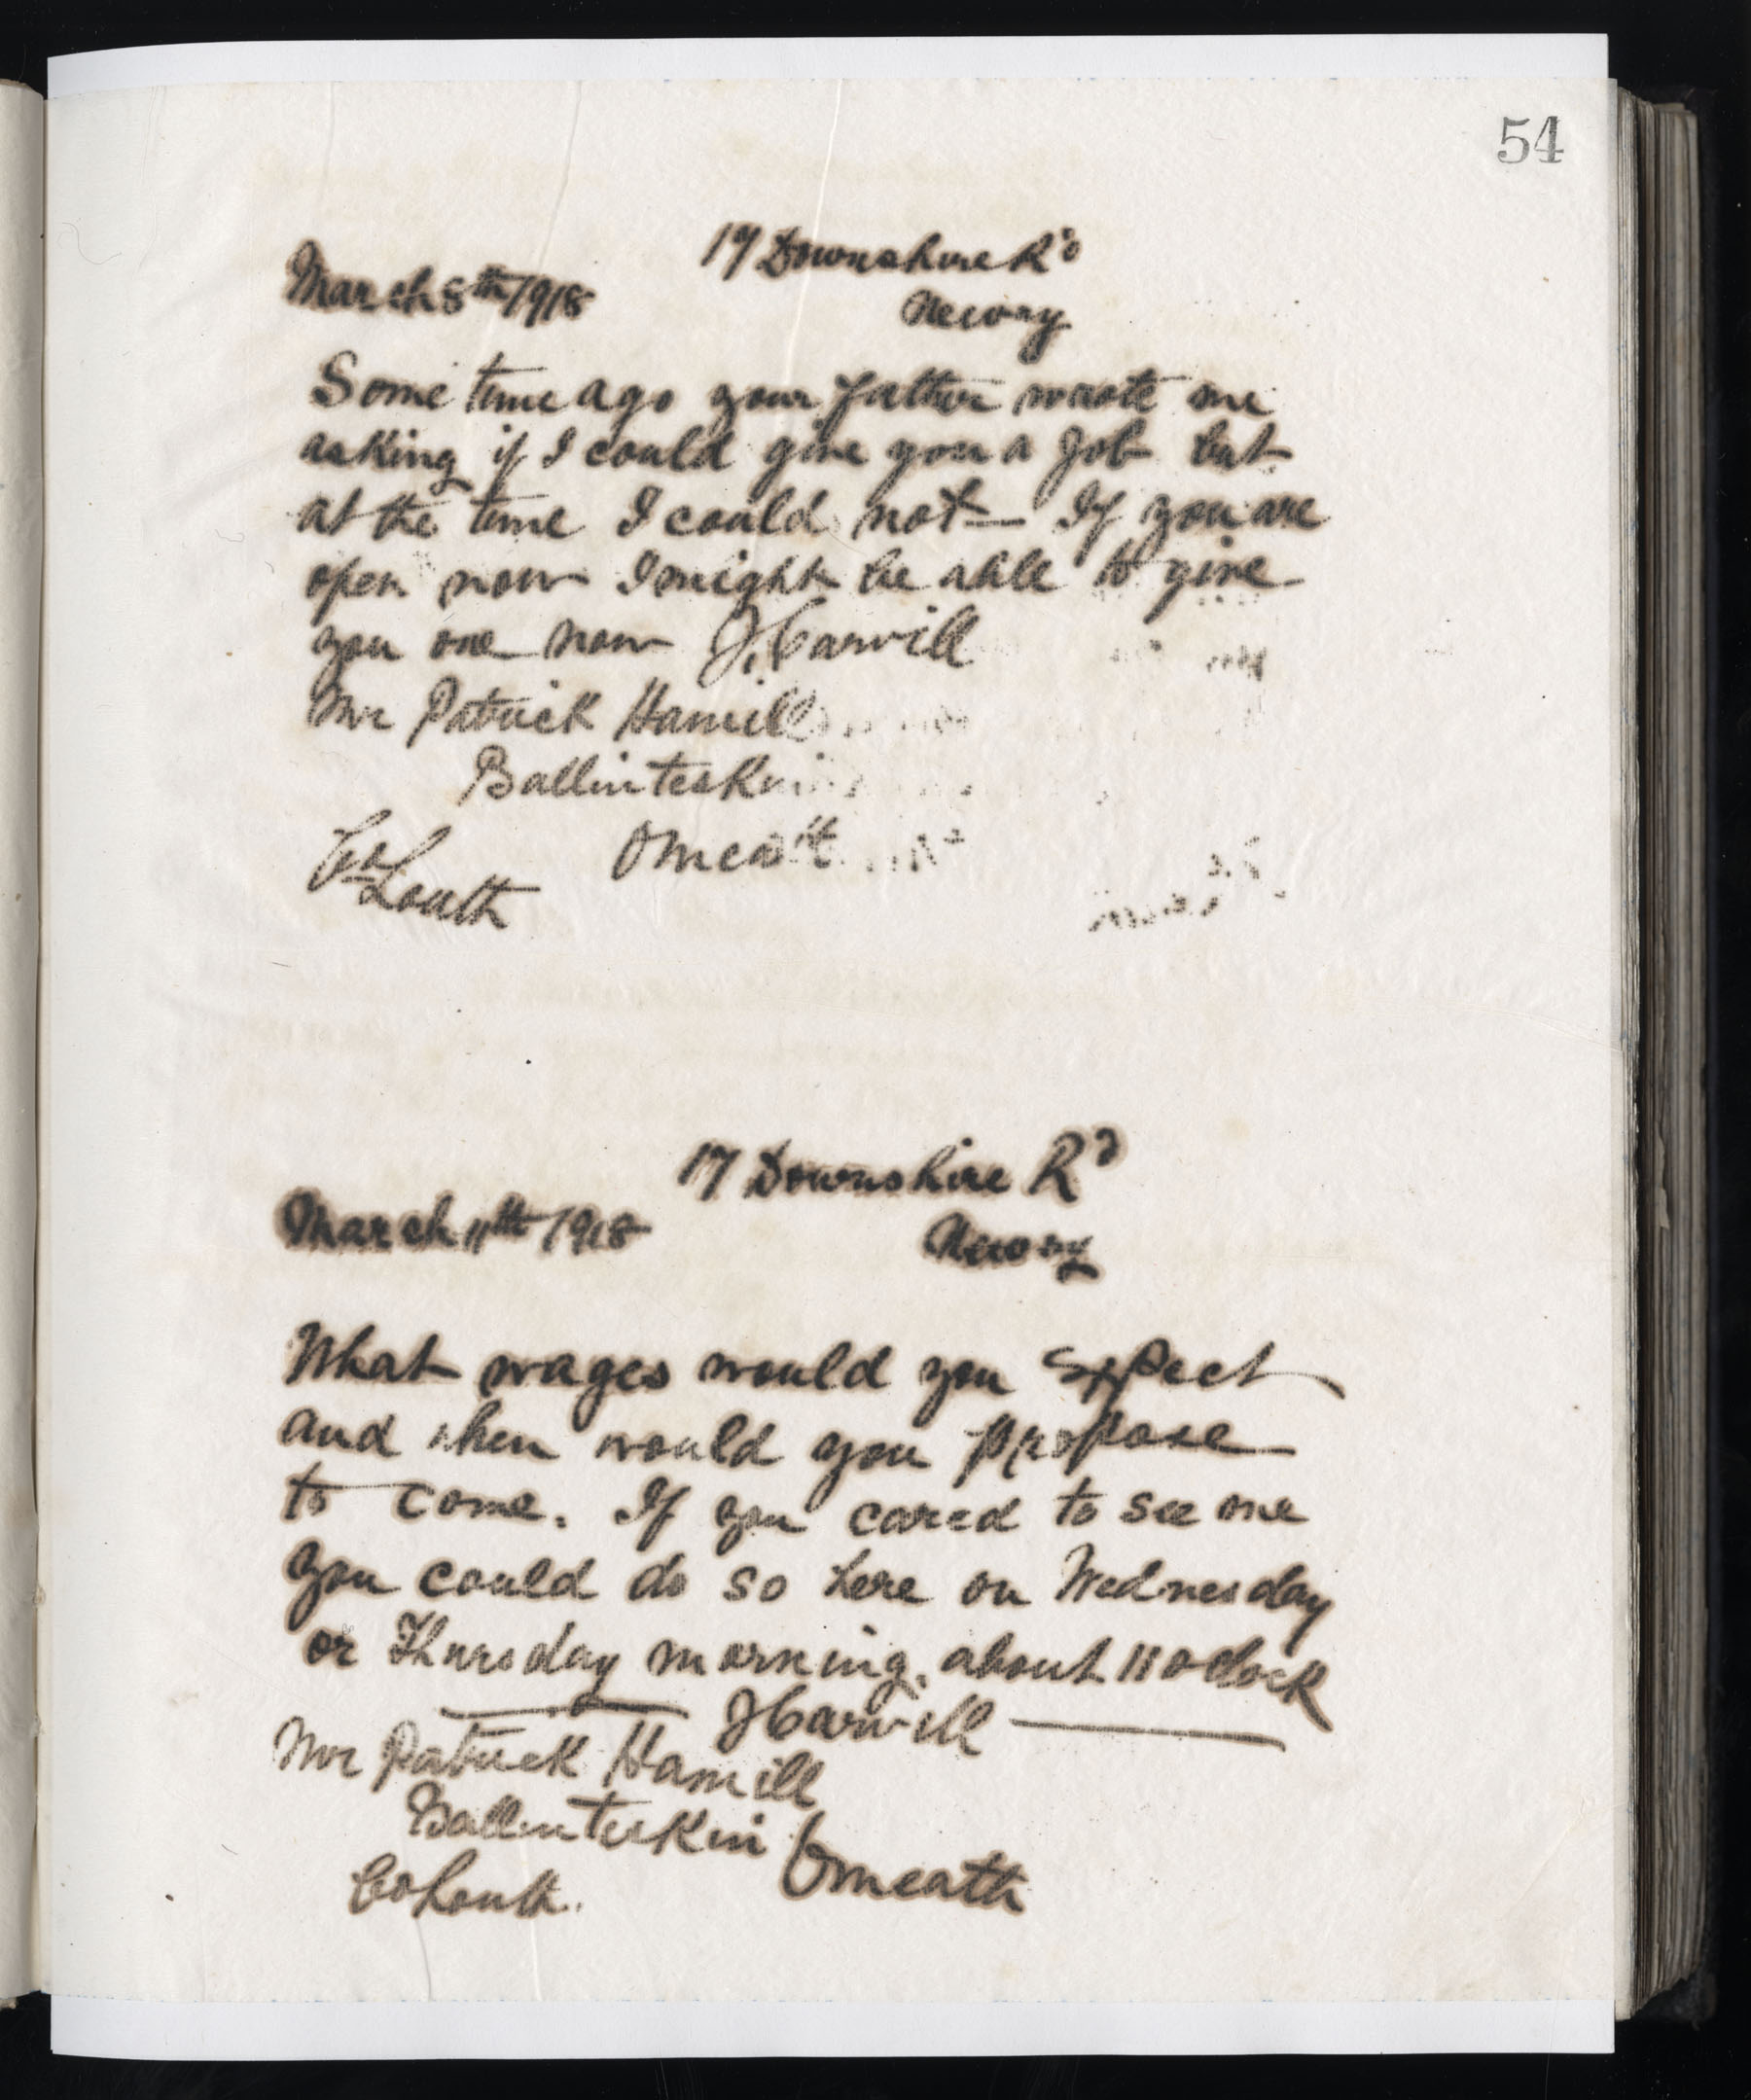 54
17 Downshire Rd
March 8th 1918
Newry
Some time ago your father wrote me
asking if I could give you a job but
at the time I could not — If you are
open now I might be able to give
you one now J. Carvill
Mr Patrick Hamill
Ballinteskin
Omeath
Co Louth
17 Downshire Rd
March 11th 1918
Newry
What wages would you expect
and when would you propose
to come. If you cared to see me
you could do so here on Wednesday
or Thursday morning. about 11 oclock
J Carvill
Mr Patrick Hamill
Ballinteskin Omeath
Co Louth.